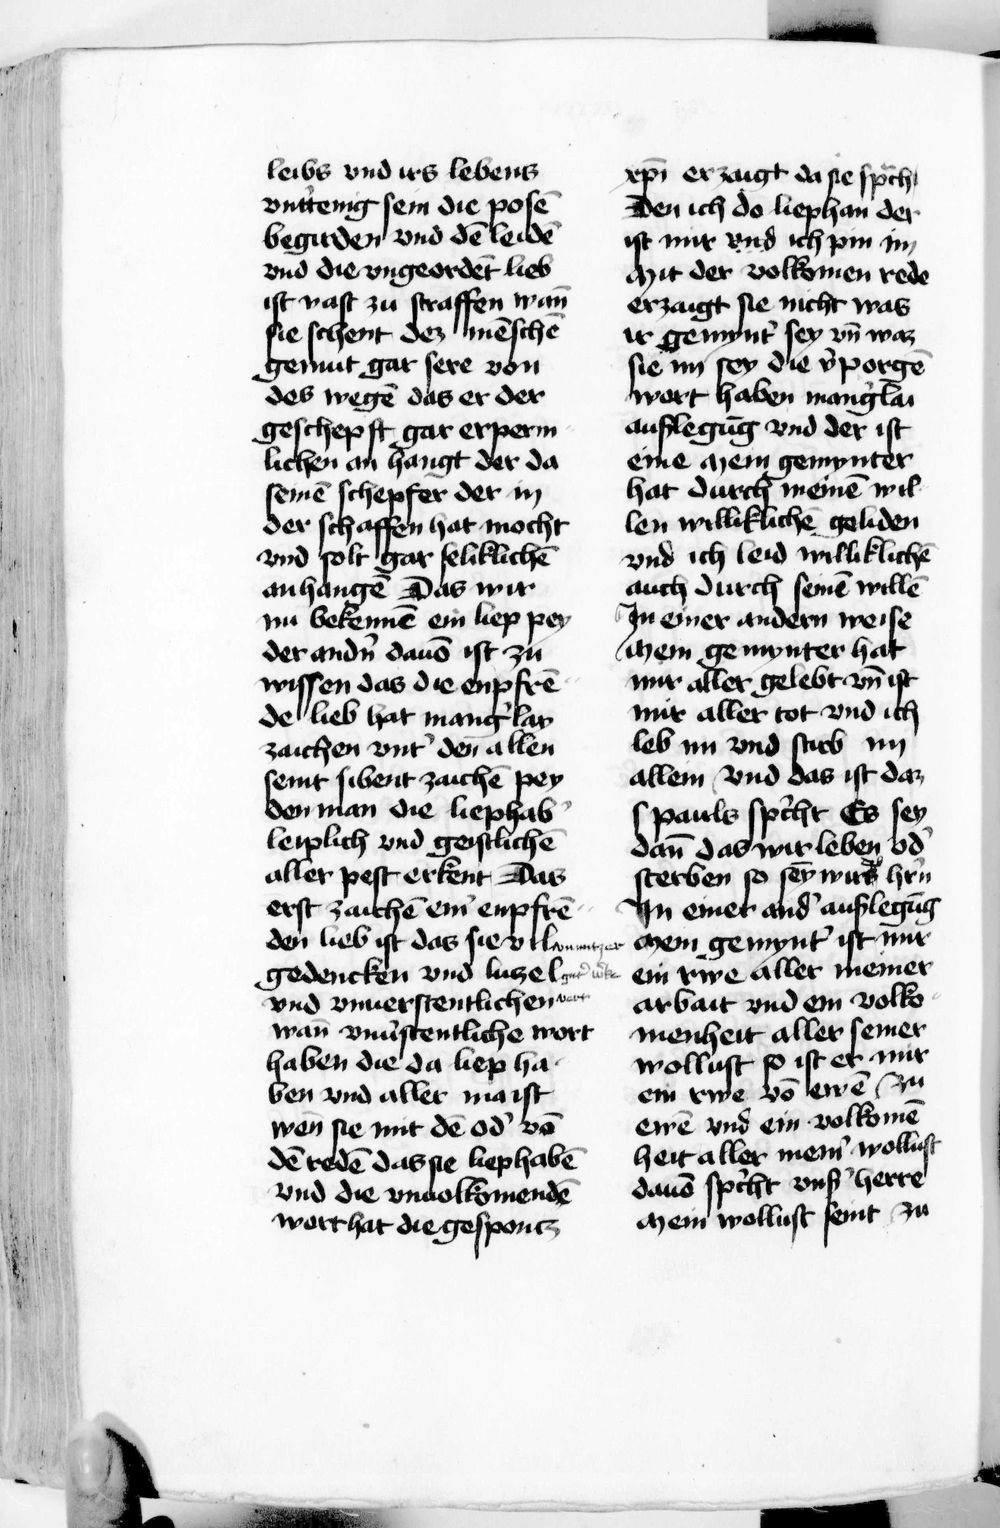 leibs vnd irs lebens
vntt̾enig sein die posē
begirden vnd dē leidē
vnd die vngeordēt lieb
ist vast zu straffen wan̄
sie schent dez mēschē
gemut gar sere von
des wegē das er der
geschepft gar erperm
lichen an hangt der da
seinē schepfer der in
der schaffen hat mocht
vnd solt gar seliklichē
anhangē Das wir
nu bekennē ein liep pey
der andn̾ dauō ist zu
wissen das die enpfrē
de lieb hat mang̾lay
zaichen vnt̾ den allen
seint sibent zaichē pey
den man die liephab̾
leiplich vnd geistlichē
aller pest erkent Das
erst zaichē ein̾ enpfrē
den lieb ist das sie vil vnnutzer
gedencken vnd luzel gut̾
vnd vnuerstentlichen wort
wan̄ vnu̾stentliche wort
haben die da liep ha
ben vnd aller maist
wen̄ sie mit dē od̾ vō
dē redē das sie liephabē
vnd die vnuolkomendē
wort hat die gesponcz
xp̄i erzaigt da sie sprach
Den ich do liephan der
ist mir vnd ich pin im
Mit der volkomen rede
erzaigt sie nicht was
ir gemynt̾ sey vn̄ waz
sie im sey die v̾porgē
wort haben mang̾lai
auslegūg vnd der ist
eine Mein gemynter
hat durch meinē wil
len willliklichē geliden
vnd ich leid williklichē
auch durch seinē willē
In einer andern weise
Mein gemynter hat
mir aller gelebt vn̄ ist
mir aller tot vnd ich
leb im vnd stirb im
allein Vnd das ist daz
S pauls sp̾cht Es sey
dan̄ das wir leben od̾
sterben so sey wirs h̾rn
In einer and̾ auslegūg
Mein gemynt̾ ist mir
ein rwe aller meiner
arbait vnd ein volko
menheit aller seiner
wollust so ist er mir
ein rwe vō ewē Zu
ewē vnd ein volkomē
heit aller mein̾ wollust
dauō sp̾cht vns̾ herre
Mein wollust seint Zu